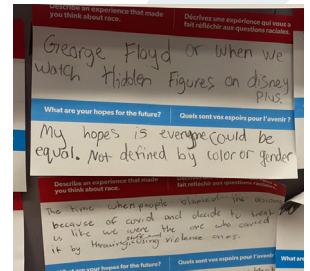 Describe an experience that made
you think about race.
Décrivez une expérience qui vous a
fait réfléchir aux questions raciales.
George Floyd or when we
watch Hidden Figures on disney
plus.
What are your hopes for the future?
Quels sont vos espoirs pour l'avenir ?
My hopes is everyone could be
equal. Not defined by color or gender
Describe an experience that made
you think about race.
fait réfléchir aux questions raciales.
The time when people blamed the
because of covid and decide to treat
us like we were the one who caused
it by throwing stuff using violence
What are your hopes for the future?
Quels sont vos espoirs pour l'avenir ?
What are